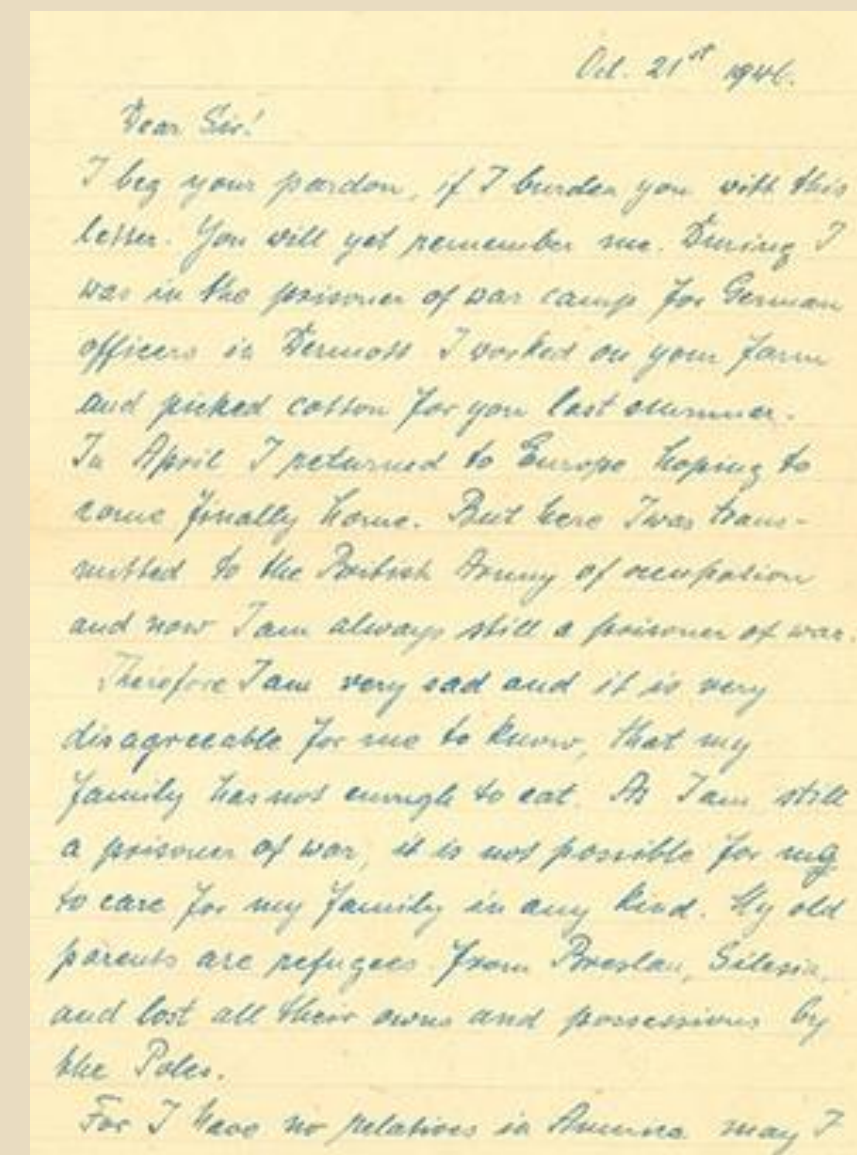 Oct. 21st 1946.
Dear Sir!
I beg your pardon, if I burden you with this
letter. You will yet remember me. During I
was in the prisoner of war camp for German
officers in Dermott I worked on your farm
and picked cotton for you last summer.
In April I returned to Europe hoping to
come finally home. But here I was trans-
mitted to the British Army of occupation
and now I am always still a prisoner of war.
Therefore I am very sad and it is very
disagreeable for me to know, that my
family has not enough to eat. As I am still
a prisoner of war, it is not possible for me
to care for my family in any kind. My old
parents are refugees from Breslau, Silesia,
and lost all their owns and possessions by
the Poles.
For I have no relatives in America may I